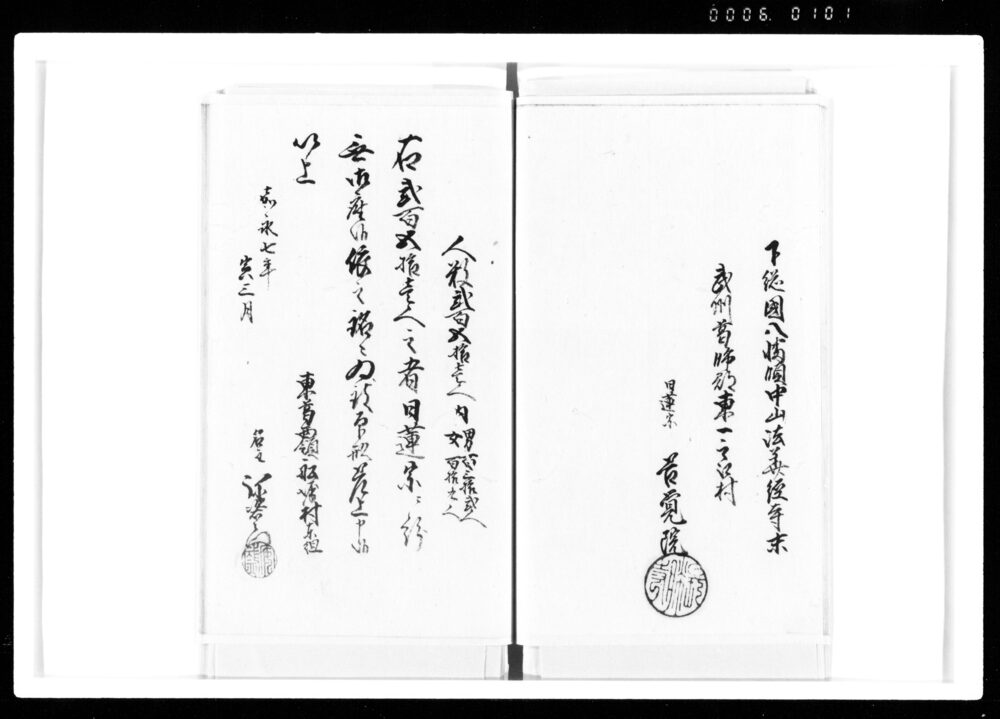 0006. 0101
下総國八幡領中山法華経寺末
武州葛飾郡東一之江村
日蓮宗
覚院
人数弐百五拾壱人 内 男百三拾弐人
女百拾九人
右弐百五拾壱人之者日蓮宗ニ紛
無御座候依之銘々為致印形差上申候
以上
嘉永七年
寅三月
東葛西領 村東組
名主